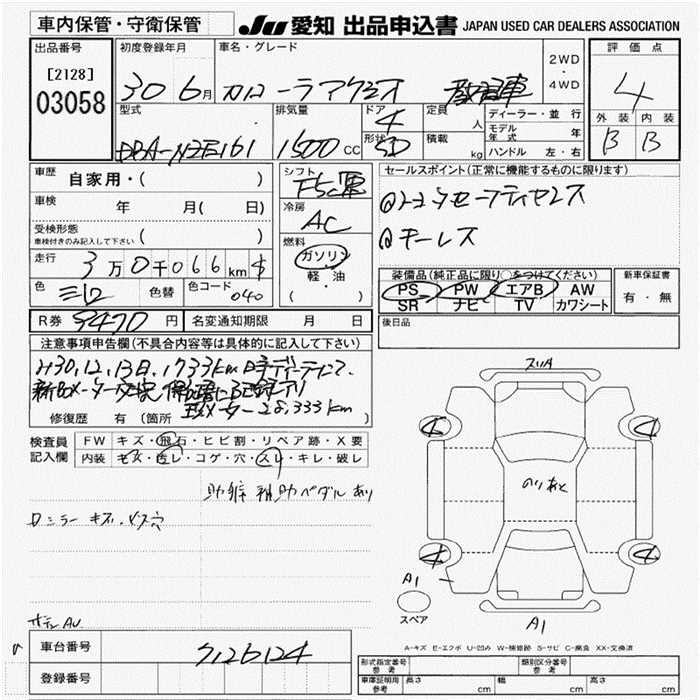 車内保管・守衛保管 JU 愛知 出品申込書 JAPAN USED CAR DEALERS ASSOCIATION
出品番号 初度登録年月 車名・グレード 2WD・4WD 評価点
[2128] 03058 30 6月 カローラアクシオ 教習車 4
型式 排気量 ドア 4 定員 人 ディーラー・並行 外装 内装
DBA-NZE161 1500 CC 形状 SD 積載 kg モデル年式 年 B B
ハンドル 左・右
車歴 自家用・( ) シフト F5 セールスポイント(正常に機能するものに限ります)
車検 年 月( 日) 冷房 AC
受検形態 車検付きのみ記入して下さい ( ) ②キーレス
走行 3万0千066km 燃料 ガソリン 軽・油 ( )
色 色替 色コード 040
装備品(純正品に限り○をつけてください) 新車保証書
PS PW エアB AW 有・無
SR ナビ TV カワシート
R券 9470円 名変通知期限 月 日 後日品
注意事項申告欄(不具合内容等は具体的に記入して下さい)
H30,12,13日,1733km時ディーラーにて
新メーター交換
旧メーター28,333km
修復歴 有 (箇所 )
検査員記入欄 FW キズ・飛石・ヒビ割・リペア跡・X要
内装 キズ・汚レ・コゲ・穴・スレ・キレ・破レ
助手席 補助ペダルあり
ミラー キズ・ビス穴
スリキ
のりあと
A1
スペア
A1
A-キズ E-エクボ U-凹み W-補修跡 S-サビ C-腐食 XX-交換済
車台番号 7126124
登録番号
形式指定番号 参考 類別区分番号 参考
車庫証明用 参考 長さ cm 幅 cm 高さ cm